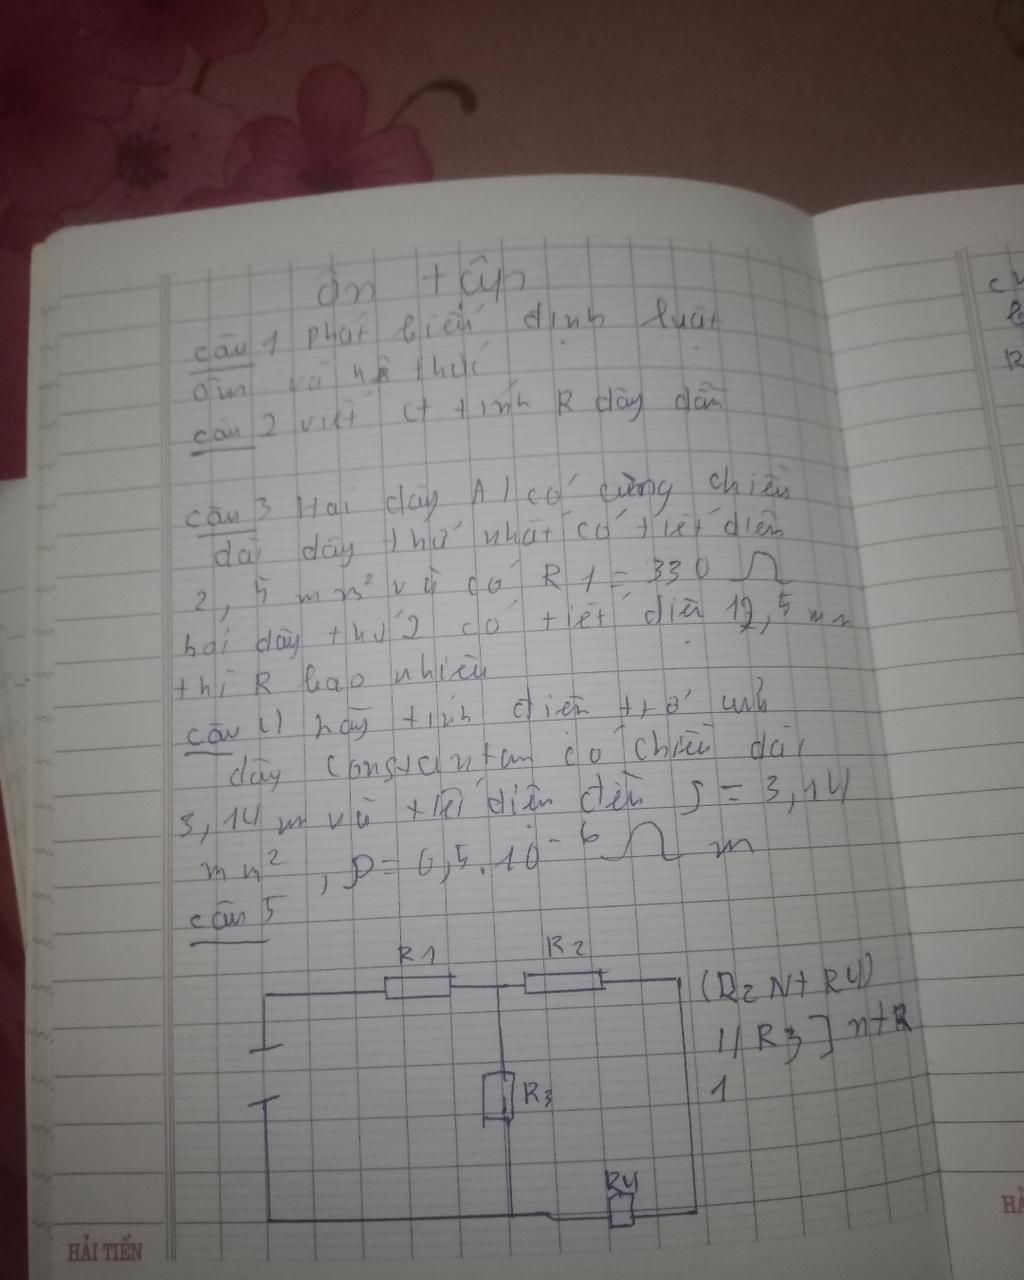 ôn tập
câu 1 phát biểu định luật
ôm và hệ thức
câu 2 viết ct tính R dây dẫn
câu 3 Hai dây Al có cùng chiều
dài dây thứ nhất có tiết diện
2,5 mm² và có R1 = 330 Ω
hỏi dây thứ 2 có tiết diện 12,5 mm
thì R bao nhiêu
câu 4 hãy tính điện trở
dây Constantan có chiều dài
3,14 m và tiết diện đều S = 3,14
mm², ρ = 0,5.10⁻⁶ Ω m
câu 5
R1 R2
(R2 nt R4)
// R3] nt R
1
R3
R4
HẢI TIẾN